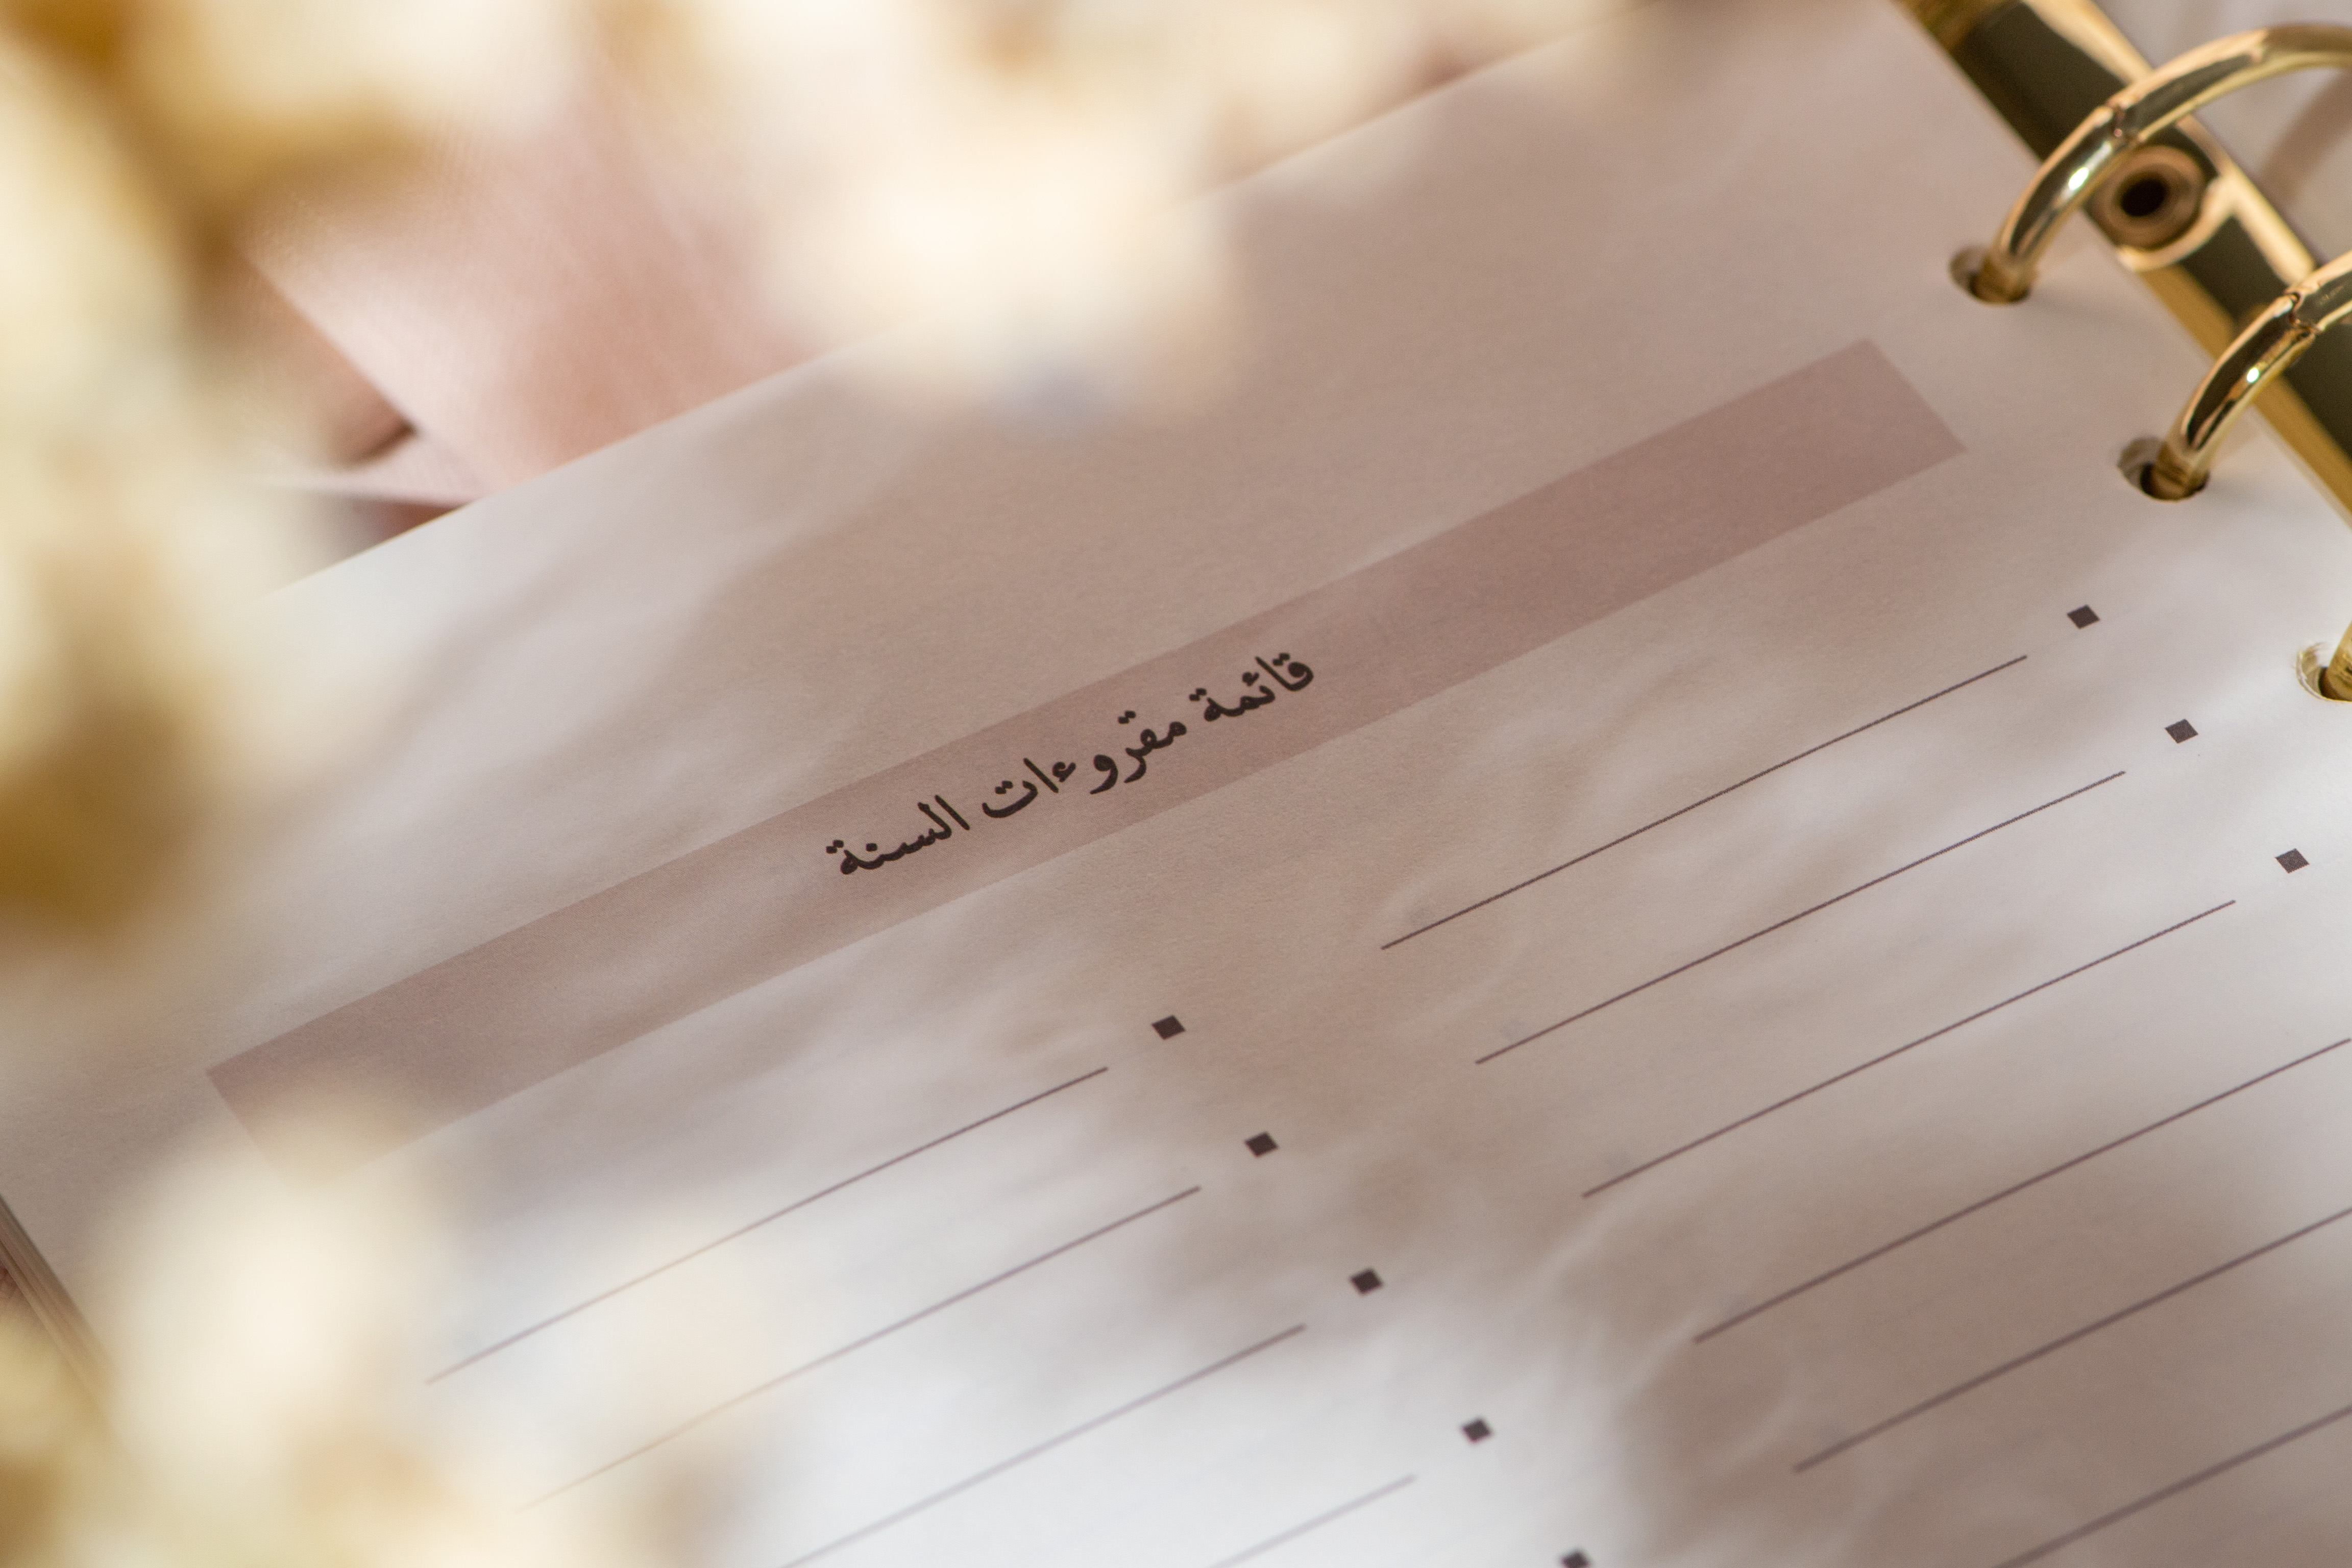 قائمة مقروءات السنة